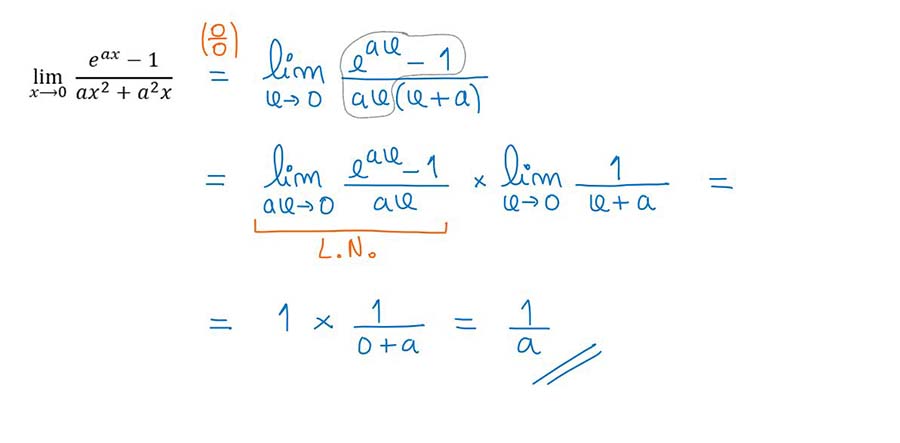 lim x→0 (e^{ax} − 1)/(ax² + a²x) (0/0) = lim x→0 (e^{ax} − 1)/(ax(x + a))
= lim ax→0 (e^{ax} − 1)/(ax) × lim x→0 1/(x + a) =
L.N.
= 1 × 1/(0 + a) = 1/a